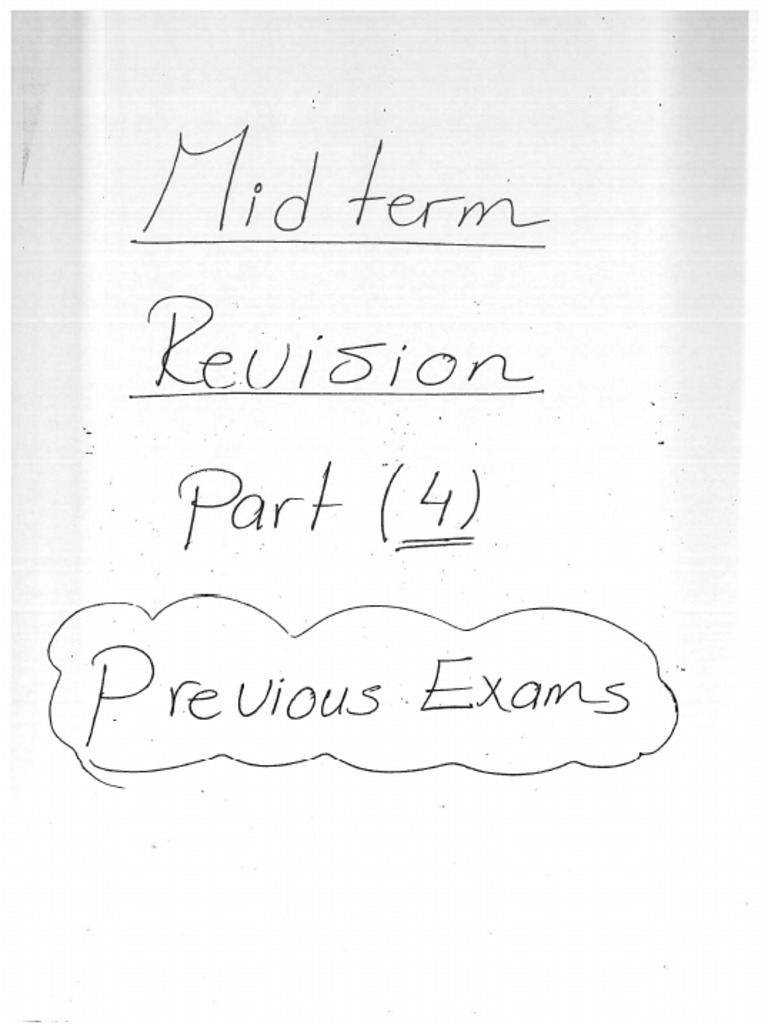 Mid term
Revision
Part (4)
Previous Exams